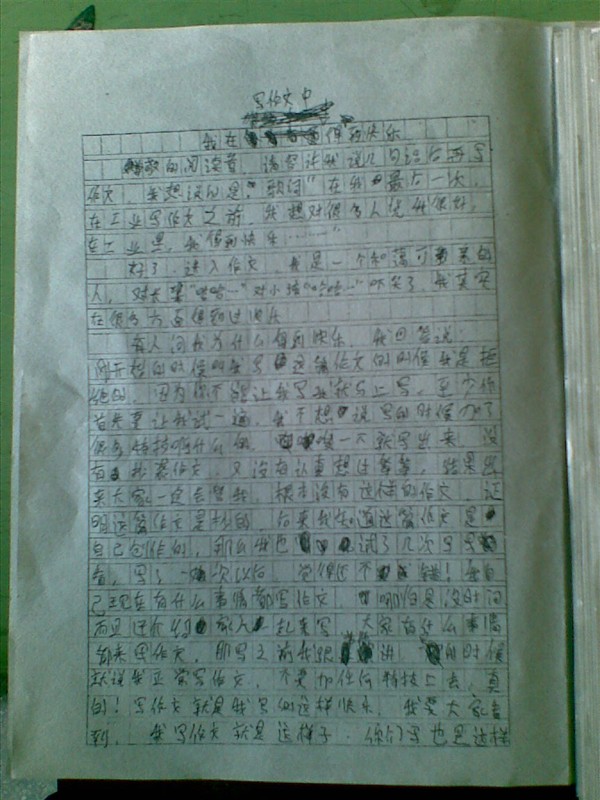 写作文中
我在得到快乐
的阅读者，请允许我说几句话后再写
作文，我想说的是"歌词"在我最后一次，
在工业写作文之前，我想对很多人说我很好，
在工业里，我得到快乐………"
好了，进入作文，我是一个和蔼可亲的
人，对长辈"哈哈…"对小孩"哈哈…"吓笑了，我真实
在很多方面得到过快乐
有人问我为什么得到快乐，我回答说：
刚开始的时候叫我写这篇作文的时候我是拒
绝的，因为你不能让我写我就马上写，至少你
首先要让我试一遍，我不想说写的时候加了
很多特技什么的，一下就写出来，没
有抄袭作文，又没有认真想过等等，结果出
来大家一定会骂我，根本没有这样的作文，证
明这篇作文是抄的，后来我知道这篇作文是
自己创作的，那么我也试了几次写写
看，写了一次以后，觉得还不错！每自
己现在有什么事情都写作文，哪怕是没时间
而且还介绍家人赶来写，大家有什么事情
都来写作文，那写之前我跟讲，"的时候
就说我正常写作文，不要加任何特技上去，真
的！写作文就是我写的这样快乐，我要大家看
到，我写作文就是这样子，你们写也是这样